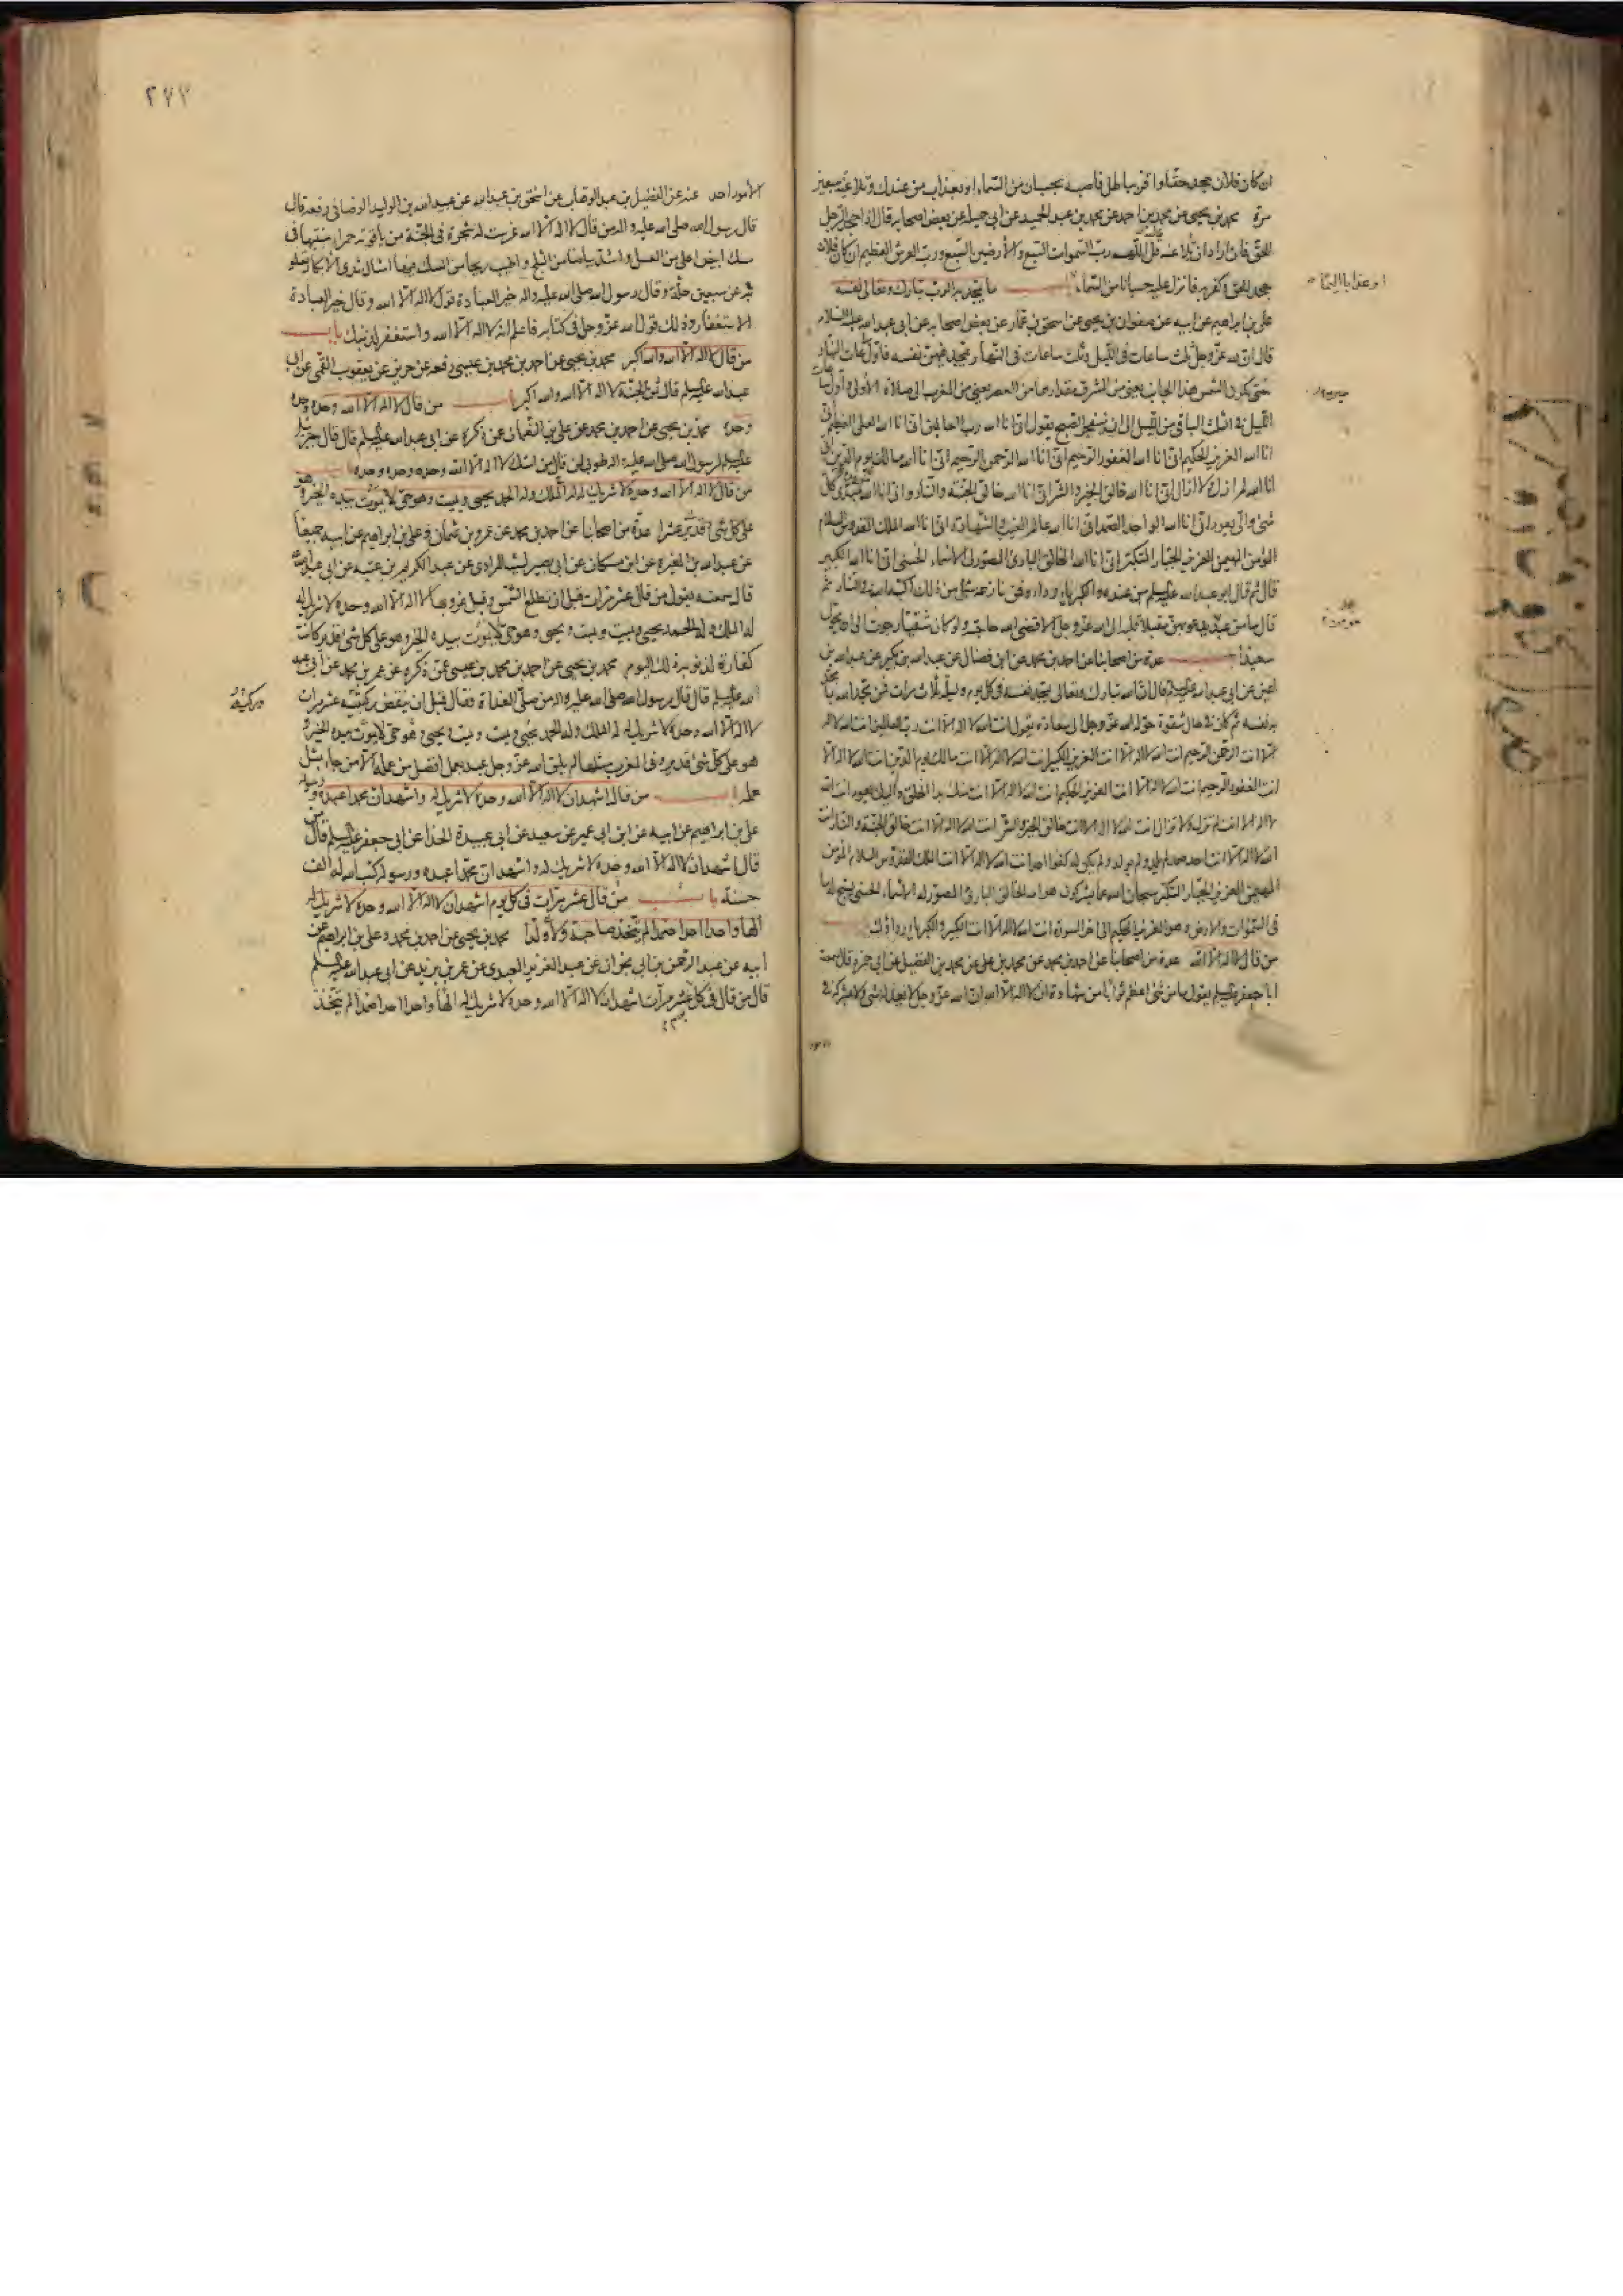 ان كان فلان جحد حقا واقر بباطل فاصبه بحسبان من السماء او بعذاب من عندك وتلاعنه سبعين
مرة محمد بن يحيى عن محمد بن احمد عن محمد بن عبد الحميد عن ابي جميلة عن بعض اصحابه قال اذا جحد الرجل
الحق فان اراد ان تلاعنه قل اللهم رب السموات السبع والارضين السبع ورب العرش العظيم ان كان فلان
جحد الحق وكفر به فانزل عليه حسبانا من السماء ما يمجد به الرب تبارك وتعالى نفسه
او عذابا اليما
علي بن ابراهيم عن ابيه عن صفوان بن يحيى عن اسحق بن عمار عن بعض اصحابه عن ابي عبد الله عليه السلام
قال ان لله عز وجل ثلث ساعات في الليل وثلث ساعات في النهار يمجد فيهن نفسه فاول ساعات النهار
حتى تكون الشمس هذا الجانب يعني من المشرق مقدارها من العصر يعني من المغرب الى صلاة الاولى واول ساعات
الليل في الثلث الباقي من الليل الى ان ينفجر الصبح يقول اني انا الله رب العالمين اني انا الله العلي العظيم
انا الله العزيز الحكيم اني انا الله الغفور الرحيم اني انا الله الرحمن الرحيم اني انا الله مالك يوم الدين
انا الله لم ازل ولا ازال اني انا الله خالق الخير والشر اني انا الله خالق الجنة والنار واني انا الله بدئ كل
شئ والي يعود اني انا الله الواحد الصمد اني انا الله عالم الغيب والشهادة اني انا الله الملك القدوس السلام
المؤمن المهيمن العزيز الجبار المتكبر اني انا الله الخالق البارئ المصور لي الاسماء الحسنى اني انا الله الكبير
قال ثم قال ابو عبد الله عليه السلم من عنده والكبرياء رداؤه فمن نازعه شيئا من ذلك اكبه الله في النار ثم
قال ما من عبد يدعو بهن مقبلا قلبه الى الله عز وجل الا قضى الله حاجته ولو كان شقيا رجوت ان يحول
سعيدا عدة من اصحابنا عن احمد بن محمد عن ابن فضال عن عبد الله بن بكير عن عبد الله بن
اعين عن ابي عبد الله عليه السلم قال ان الله تبارك وتعالى يمجد نفسه في كل يوم وليلة ثلاث مرات فمن مجد الله بما
مجد به نفسه ثم كان في حال شقوة حوله الله عز وجل الى سعادة يقول انت الله لا اله الا انت رب العالمين انت الله لا اله
الا انت الرحمن الرحيم انت الله لا اله الا انت العزيز الكبير انت الله لا اله الا انت مالك يوم الدين انت الله لا اله الا
انت الغفور الرحيم انت الله لا اله الا انت العزيز الحكيم انت الله لا اله الا انت منك بدأ الخلق واليك يعود انت الله
لا اله الا انت لم تزل ولا تزال انت الله لا اله الا انت خالق الخير والشر انت الله لا اله الا انت خالق الجنة والنار انت
الله لا اله الا انت احد صمد لم يلد ولم يولد ولم يكن له كفوا احد انت الله لا اله الا انت الملك القدوس السلام المؤمن
المهيمن العزيز الجبار المتكبر سبحان الله عما يشركون هو الله الخالق البارئ المصور له الاسماء الحسنى يسبح له ما
في السموات والارض وهو العزيز الحكيم الى اخر السورة انت الله لا اله الا انت الكبير والكبرياء رداؤك
من قال لا اله الا الله عدة من اصحابنا عن احمد بن محمد عن محمد بن علي عن محمد بن الفضيل عن ابي حمزة قال سمعت
ابا جعفر عليه السلم يقول ما من شئ اعظم ثوابا من شهادة ان لا اله الا الله ان الله عز وجل لا يعدله شئ ولا يشركه في
٢٧٢
الامور احد عنه عن الفضيل بن عبد الوهاب عن اسحق بن عبد الله عن عبيد الله بن الوليد الوصافي رفعه قال
قال رسول الله صلى الله عليه واله من قال لا اله الا الله غرست له شجرة في الجنة من ياقوتة حمراء منبتها في
مسك ابيض احلى من العسل واشد بياضا من الثلج واطيب ريحا من المسك فيها امثال ثدي الابكار تعلو
عن سبعين حلة وقال رسول الله صلى الله عليه واله خير العبادة قول لا اله الا الله وقال خير العبادة
الاستغفار وذلك قول الله عز وجل في كتابه فاعلم انه لا اله الا الله واستغفر لذنبك باب
من قال لا اله الا الله والله اكبر محمد بن يحيى عن احمد بن محمد بن عيسى رفعه عن حريز عن يعقوب القمي عن ابي
عبد الله عليه السلم قال ثمن الجنة لا اله الا الله والله اكبر باب من قال لا اله الا الله وحده وحده
وحده محمد بن يحيى عن احمد بن محمد عن علي بن النعمان عن ذكره عن ابي عبد الله عليه السلم قال قال جبرئيل
عليه السلم لرسول الله صلى الله عليه واله طوبى لمن قال من امتك لا اله الا الله وحده وحده وحده باب
من قال لا اله الا الله وحده لا شريك له له الملك وله الحمد يحيي ويميت وهو حي لا يموت بيده الخير وهو
على كل شئ قدير عشرا عدة من اصحابنا عن احمد بن محمد عن عمرو بن عثمان وعلي بن ابراهيم عن ابيه جميعا
عن عبد الله بن المغيرة عن ابن مسكان عن ابي بصير ليث المرادي عن عبد الكريم بن عتبة عن ابي عبد الله
قال سمعته يقول من قال عشر مرات قبل ان تطلع الشمس وقبل غروبها لا اله الا الله وحده لا شريك له
له الملك وله الحمد يحيي ويميت ويميت ويحيي وهو حي لا يموت بيده الخير وهو على كل شئ قدير كانت
كفارة لذنوبه ذلك اليوم محمد بن يحيى عن احمد بن محمد بن عيسى عمن ذكره عن عمر بن محمد عن ابي عبد
الله عليه السلم قال قال رسول الله صلى الله عليه واله من صلى الغداة فقال قبل ان ينقض ركبتيه عشر مرات
لا اله الا الله وحده لا شريك له له الملك وله الحمد يحيي ويميت ويميت ويحيي وهو حي لا يموت بيده الخير و
هو على كل شئ قدير وفي المغرب مثلها لم يلق الله عز وجل عبد بعمل افضل من عمله الا من جاء بمثل
عمله باب من قال اشهد ان لا اله الا الله وحده لا شريك له واشهد ان محمدا عبده ورسوله
علي بن ابراهيم عن ابيه عن ابن ابي عمير عن سعيد عن ابي عبيدة الحذاء عن ابي جعفر عليه السلم قال من
قال اشهد ان لا اله الا الله وحده لا شريك له واشهد ان محمدا عبده ورسوله كتب الله له الف
حسنة باب من قال عشر مرات في كل يوم اشهد ان لا اله الا الله وحده لا شريك له
الها واحدا احدا صمدا لم يتخذ صاحبة ولا ولدا محمد بن يحيى عن احمد بن محمد وعلي بن ابراهيم عن
ابيه عن عبد الرحمن بن ابي نجران عن عبد العزيز العبدي عن عمر بن يزيد عن ابي عبد الله عليه السلم
قال من قال في كل يوم عشر مرات اشهد ان لا اله الا الله وحده لا شريك له الها واحدا احدا صمدا لم يتخذ